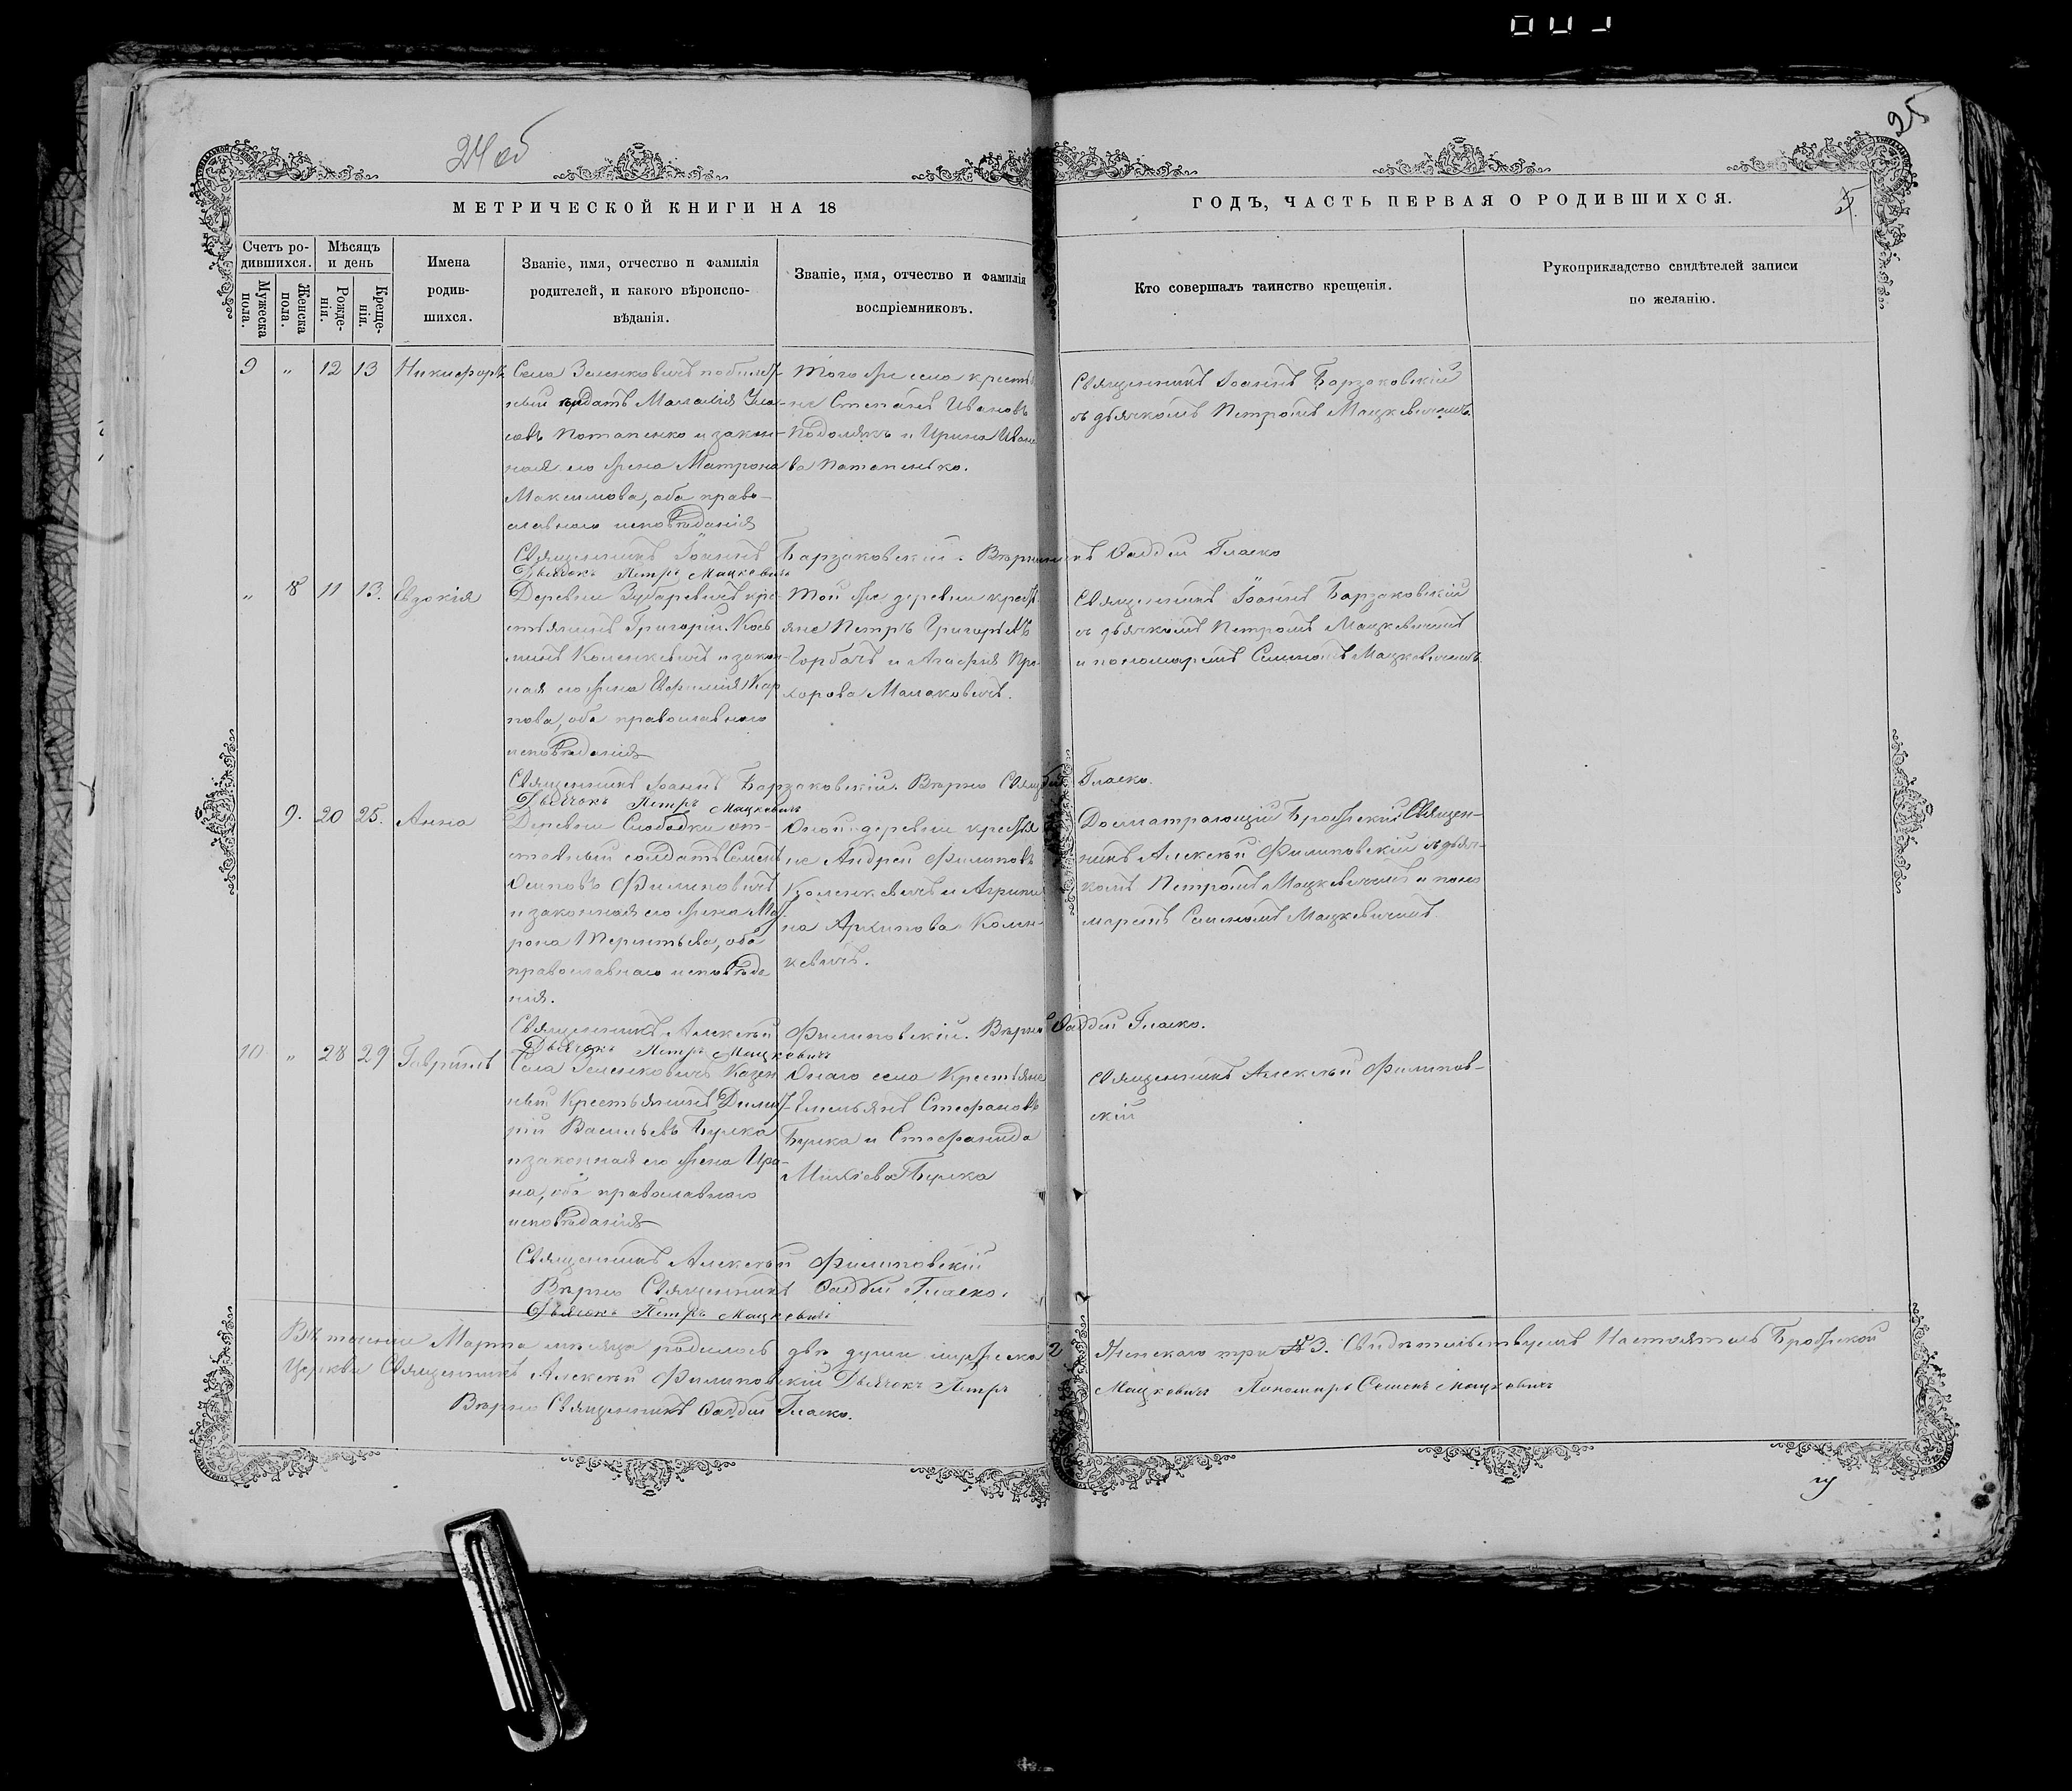 24 об
25
МЕТРИЧЕСКОЙ КНИГИ НА 18
ГОДЪ, ЧАСТЬ ПЕРВАЯ О РОДИВШИХСЯ.
Счетъ ро-
дившихся.
Мѣсяцъ
и день
Мужеска
пола.
Женска
пола.
Рожде-
нія.
Креще-
нія.
Имена
родив-
шихся.
Званіе, имя, отчество и фамилія
родителей, и какого вѣроиспо-
вѣданія.
Званіе, имя, отчество и фамилія
воспріемниковъ.
Кто совершалъ таинство крещенія.
Рукоприкладство свидѣтелей записи
по желанію.
9 „ 12 13 Никифоръ
Села Зеленковичъ
солдатъ
Потапенко и закон-
ная его жена Матрона
Максимова, оба право-
славнаго исповѣданія
Того же села крестья
не Стефанъ Ивановъ
Подолякъ и Ирина Ивано
ва Потапенько.
Священникъ Іоаннъ Барзаковскій
съ дьячкомъ Петромъ Мацкевичемъ.
Священникъ Іоаннъ Барзаковскій. Ѳаддей Гласко
Дьячокъ Петръ Мацкевичъ
„ 8 11 13. Евдокія
Деревни Зубаревичъ кре
стьянинъ Григорій
и закон-
ная его жена Евфимія Кар
пова, оба православнаго
исповѣданія
Той же деревни крестья
не Петръ Григорьевъ
Горбачъ и Агафія Про
хорова Малаковичъ.
Священникъ Іоаннъ Барзаковскій
съ дьячкомъ Петромъ Мацкевичемъ
и пономаремъ Семеномъ Мацкевичемъ
Священникъ Іоаннъ Барзаковскій. Вѣрно Гласко.
Дьячокъ Петръ Мацкевичъ
9. 20 25. Анна
Деревни Слободки от-
ставный солдатъ Семенъ
Осиповъ Филиповичъ
и законная его жена Мат
рона Терентьева, оба
православнаго исповѣда
нія.
Оной деревни крестья
не Андрей Филиповъ
и Агрипи
на Архипова Колен-
кевичъ.
Священ-
никъ Алексѣй Филиповскій съ дьяч-
комъ Петромъ Мацкевичемъ и поно
маремъ Семеномъ Мацкевичемъ.
Священникъ Алексѣй Филиповскій. Вѣрно Ѳаддей Гласко.
Дьячокъ Петръ Мацкевичъ
10 „ 28 29 Гавріилъ
Села Зеленковичъ Казен
ный Крестьянинъ Димит
рій Васильевъ Булка
и законная его жена Ири-
на, оба православнаго
исповѣданія
Онаго села Крестьяне
Емельянъ Стефановъ
Булка и Стефанида
Булка
Священникъ Алексѣй Филипов-
скій
Священникъ Алексѣй Филиповскій
Вѣрно Священникъ Ѳаддей Гласко.
Дьячокъ Петръ Мацкевичъ
Въ теченіи Марта мѣсяца родилось двѣ души мужеска 2 женскаго три № 3. Свидѣтельствуемъ Настоятель Брожской
Церкви Священникъ Алексѣй Филиповскій Дьячокъ Петръ Мацкевичъ Пономарь Семенъ Мацкевичъ
Вѣрно Священникъ Ѳаддей Гласко.